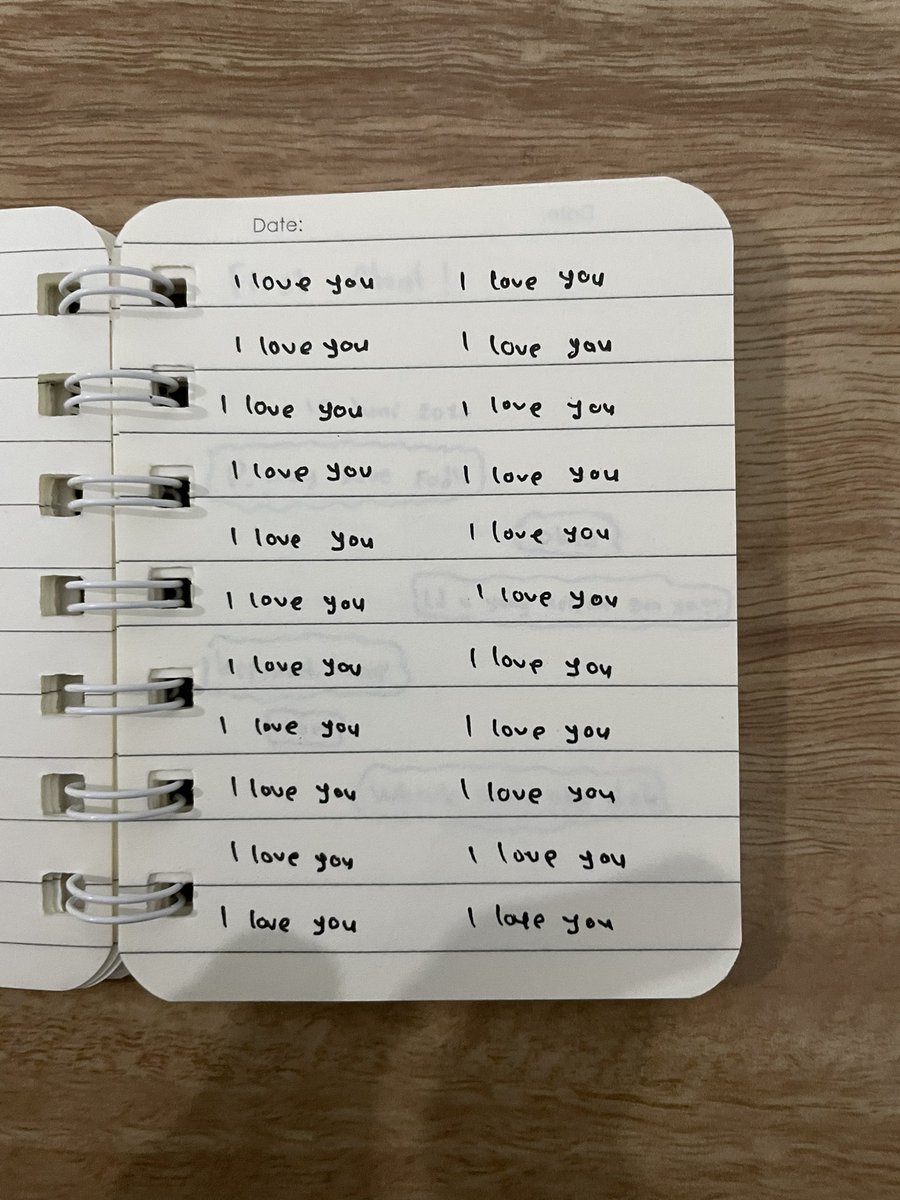 Date:
I love you I love you
I love you I love you
I love you I love you
I love you I love you
I love you I love you
I love you I love you
I love you I love you
I love you I love you
I love you I love you
I love you I love you
I love you I love you